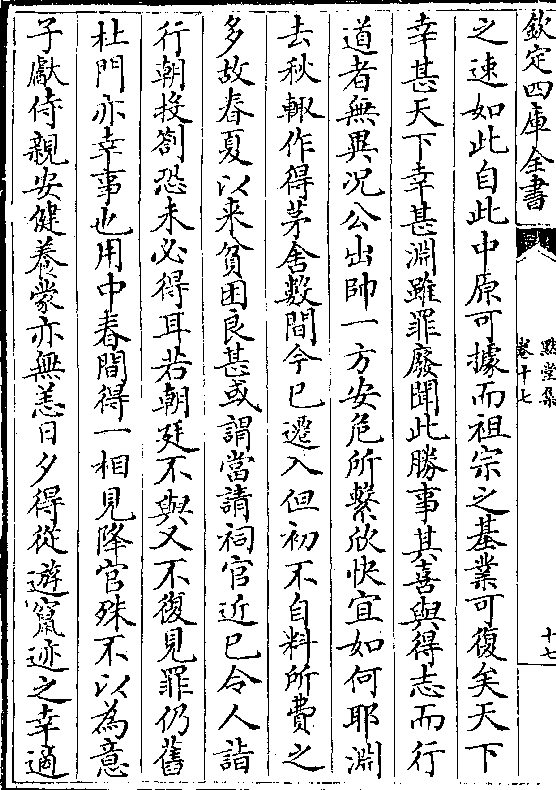 欽定四庫全書
默堂集
卷十七
十七
之速如此自此中原可據而祖宗之基業可復矣天下
幸甚天下幸甚淵雖罪廢聞此勝事其喜與得志而行
道者無異况公出帥一方安危所繫欣快宜如何耶淵
去秋輙作得茅舍數間今已遷入但初不自料所費之
多故春夏以来貧困良甚或謂當請祠官近已令人詣
行朝投劄恐未必得耳若朝廷不與又不復見罪仍舊
杜門亦幸事也用中春間得一相見降官殊不以為意
子猷侍親安健養蒙亦無恙日夕得從遊竄迹之幸適